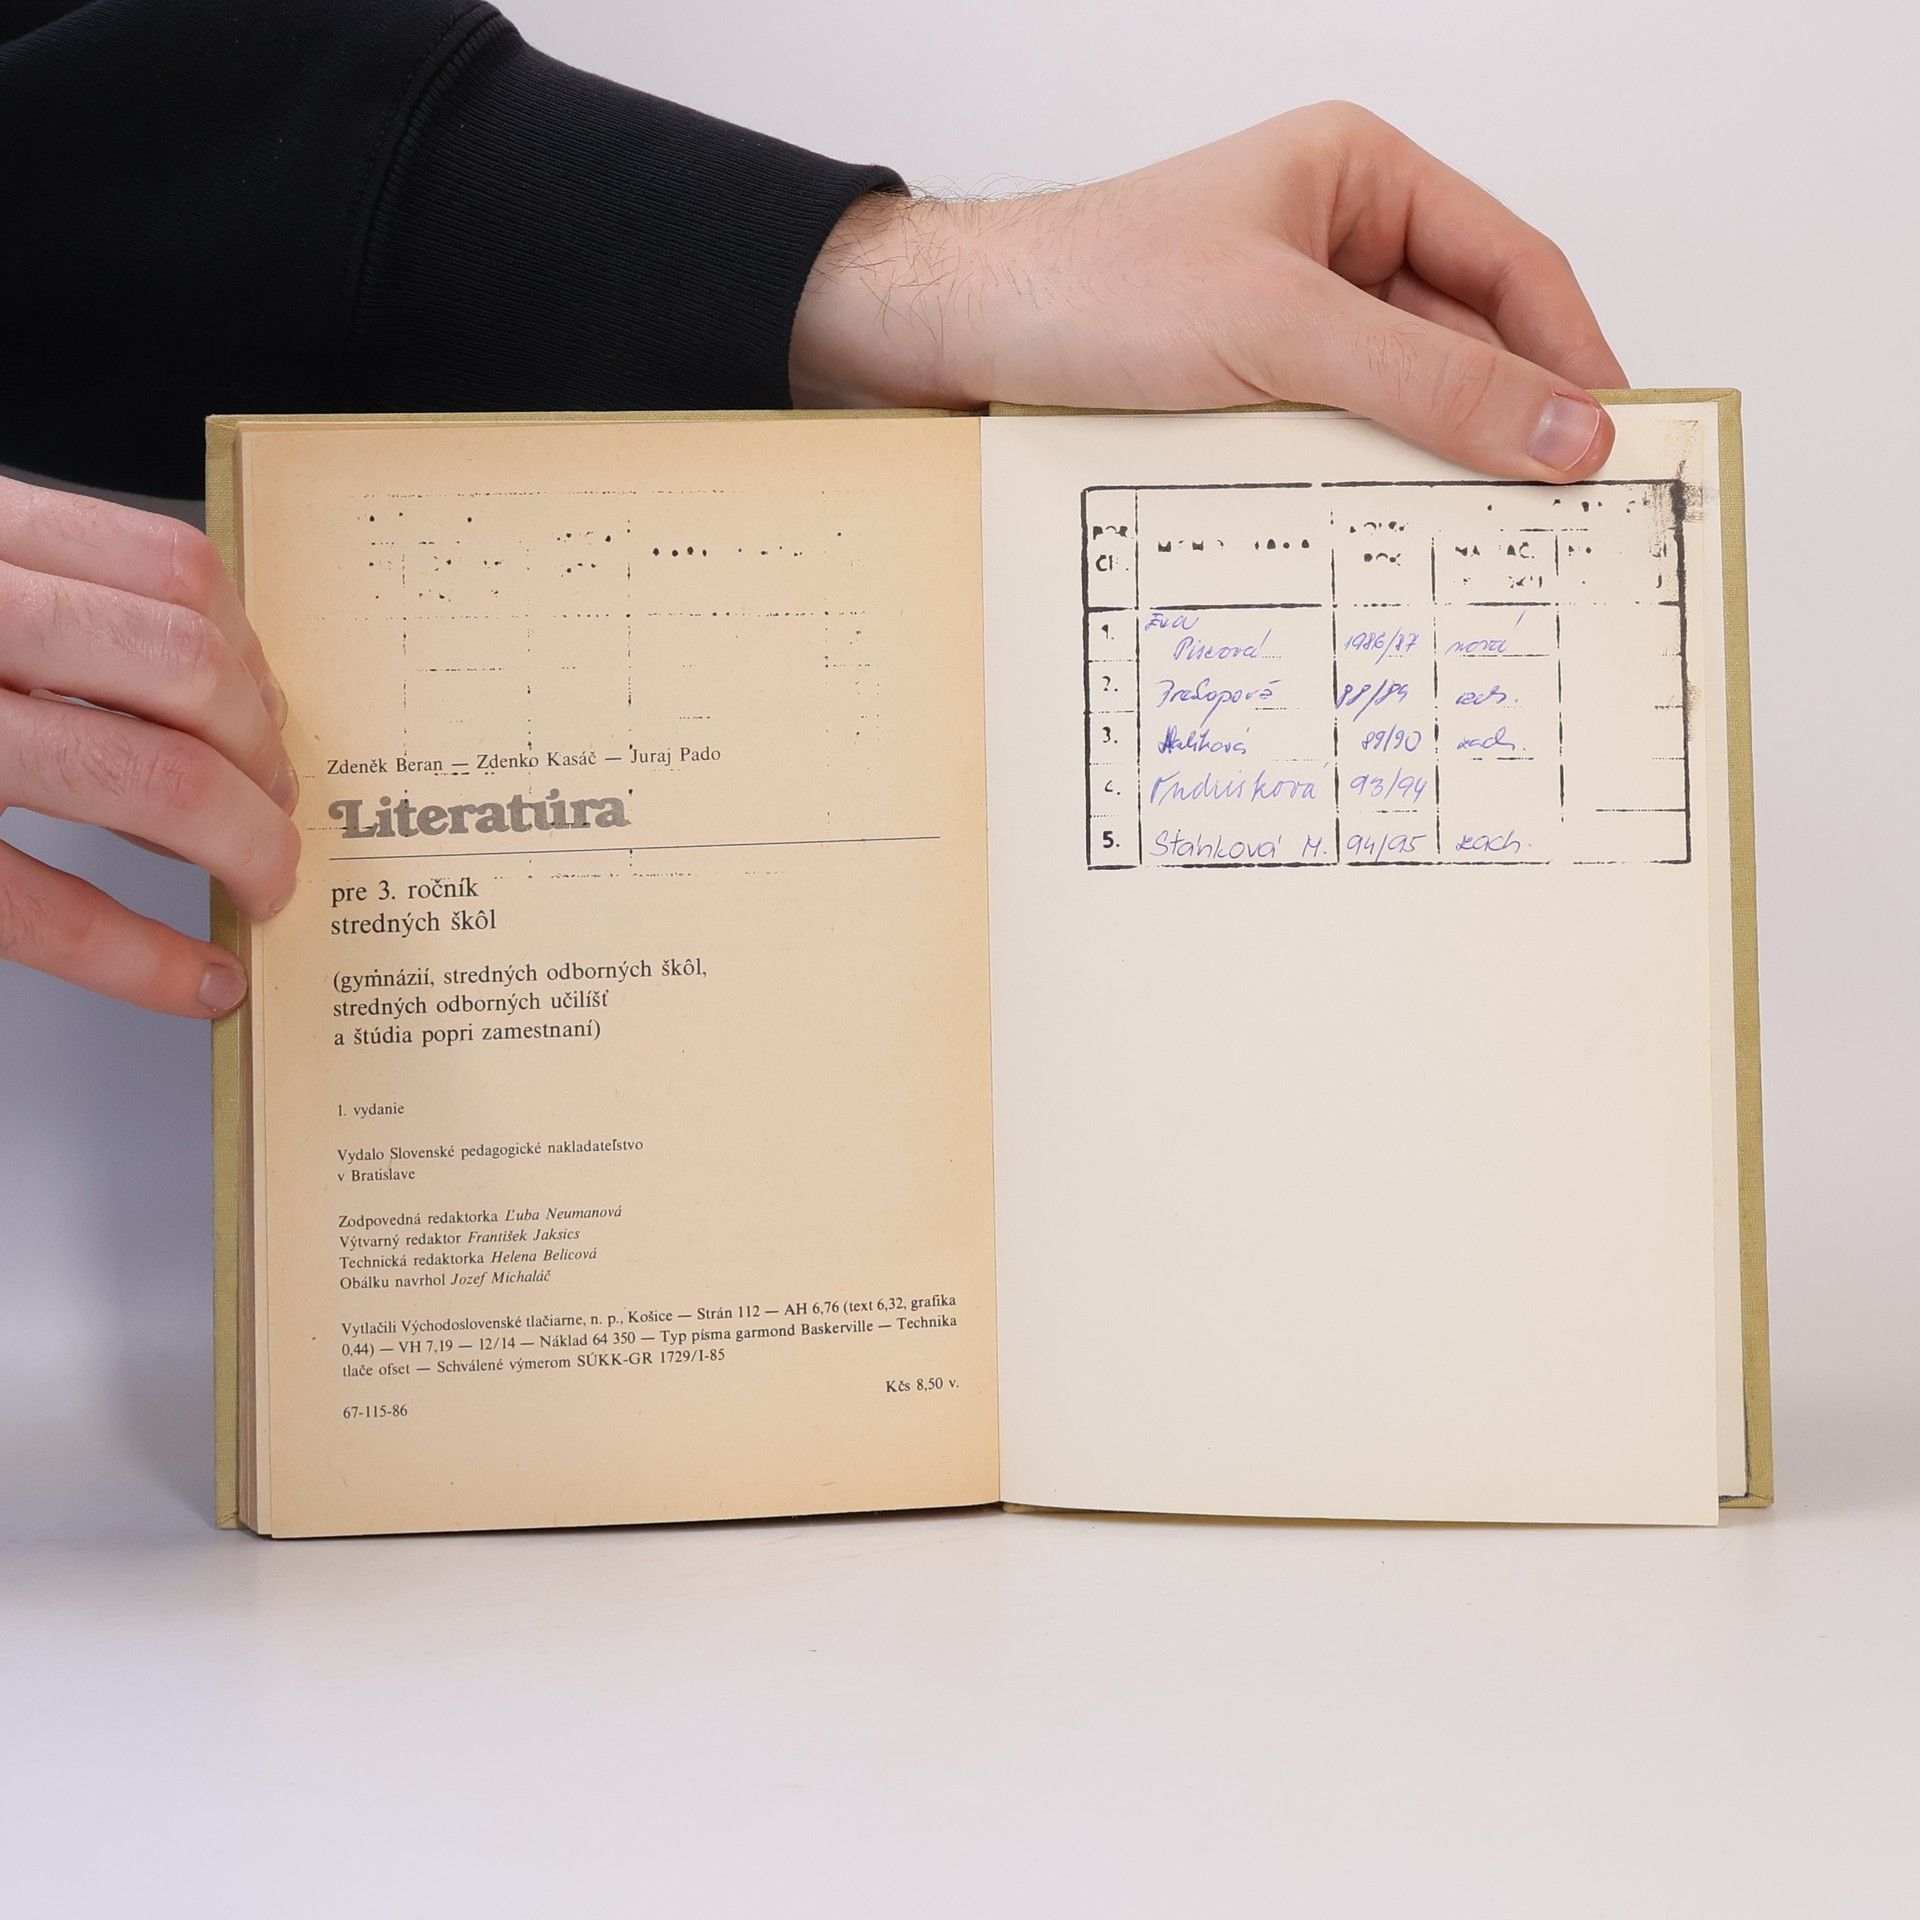 Zdeněk Beran — Zdenko Kasáč — Juraj Pado
Literatúra
pre 3. ročník
stredných škôl
(gymnázií, stredných odborných škôl,
stredných odborných učilíšť
a štúdia popri zamestnaní)
1. vydanie
Vydalo Slovenské pedagogické nakladateľstvo
v Bratislave
Zodpovedná redaktorka Ľuba Neumanová
Výtvarný redaktor František Jaksics
Technická redaktorka Helena Belicová
Obálku navrhol Jozef Michaláč
Vytlačili Východoslovenské tlačiarne, n. p., Košice — Strán 112 — AH 6,76 (text 6,32, grafika
0,44) — VH 7,19 — 12/14 — Náklad 64 350 — Typ písma garmond Baskerville — Technika
tlače ofset — Schválené výmerom SÚKK-GR 1729/I-85
Kčs 8,50 v.
67-115-86
POR.
ROK
1. Eva
Piscová 1986/87 nová
2. 88/89 zach.
3. 89/90 zach.
4. 93/94
5. Staňková M. 94/95 zach.